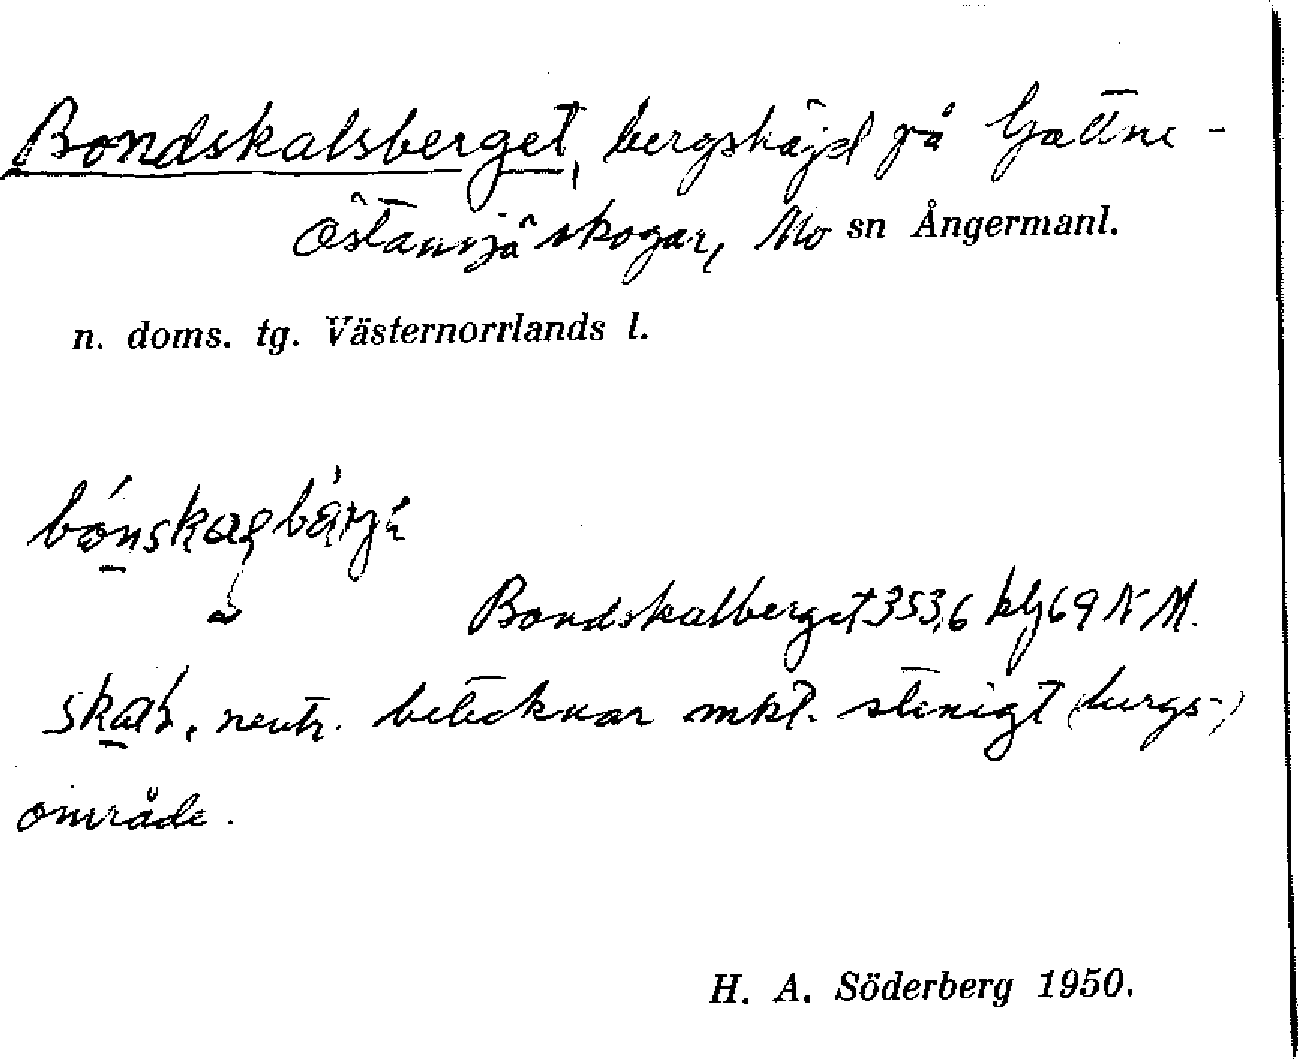 Bondskalsberget, bergshöjd på Gottne-
Östansjö skogar, Mo sn Ångermanl.
n. doms. tg. Västernorrlands l.
Bondskalberget 353,6 kbl 69 N M.
skal, neutr. betecknar mkt. stenigt (bergs-)
område.
H. A. Söderberg 1950.